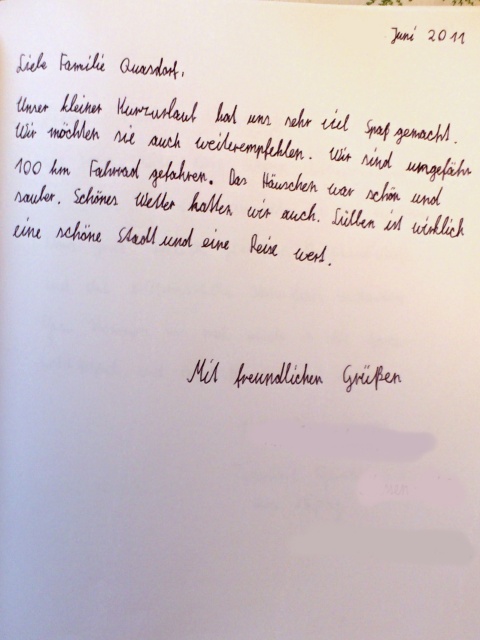 Juni 2011
Liebe Familie Quasdorf,
Unser kleiner Kurzurlaub hat uns sehr viel Spaß gemacht.
Wir möchten sie auch weiterempfehlen. Wir sind umgefähr
100 km Fahrrad gefahren. Das Häuschen war schön und
sauber. Schönes Wetter hatten wir auch. Lübben ist wirklich
eine schöne Stadt und eine Reise wert.
Mit freundlichen Grüßen